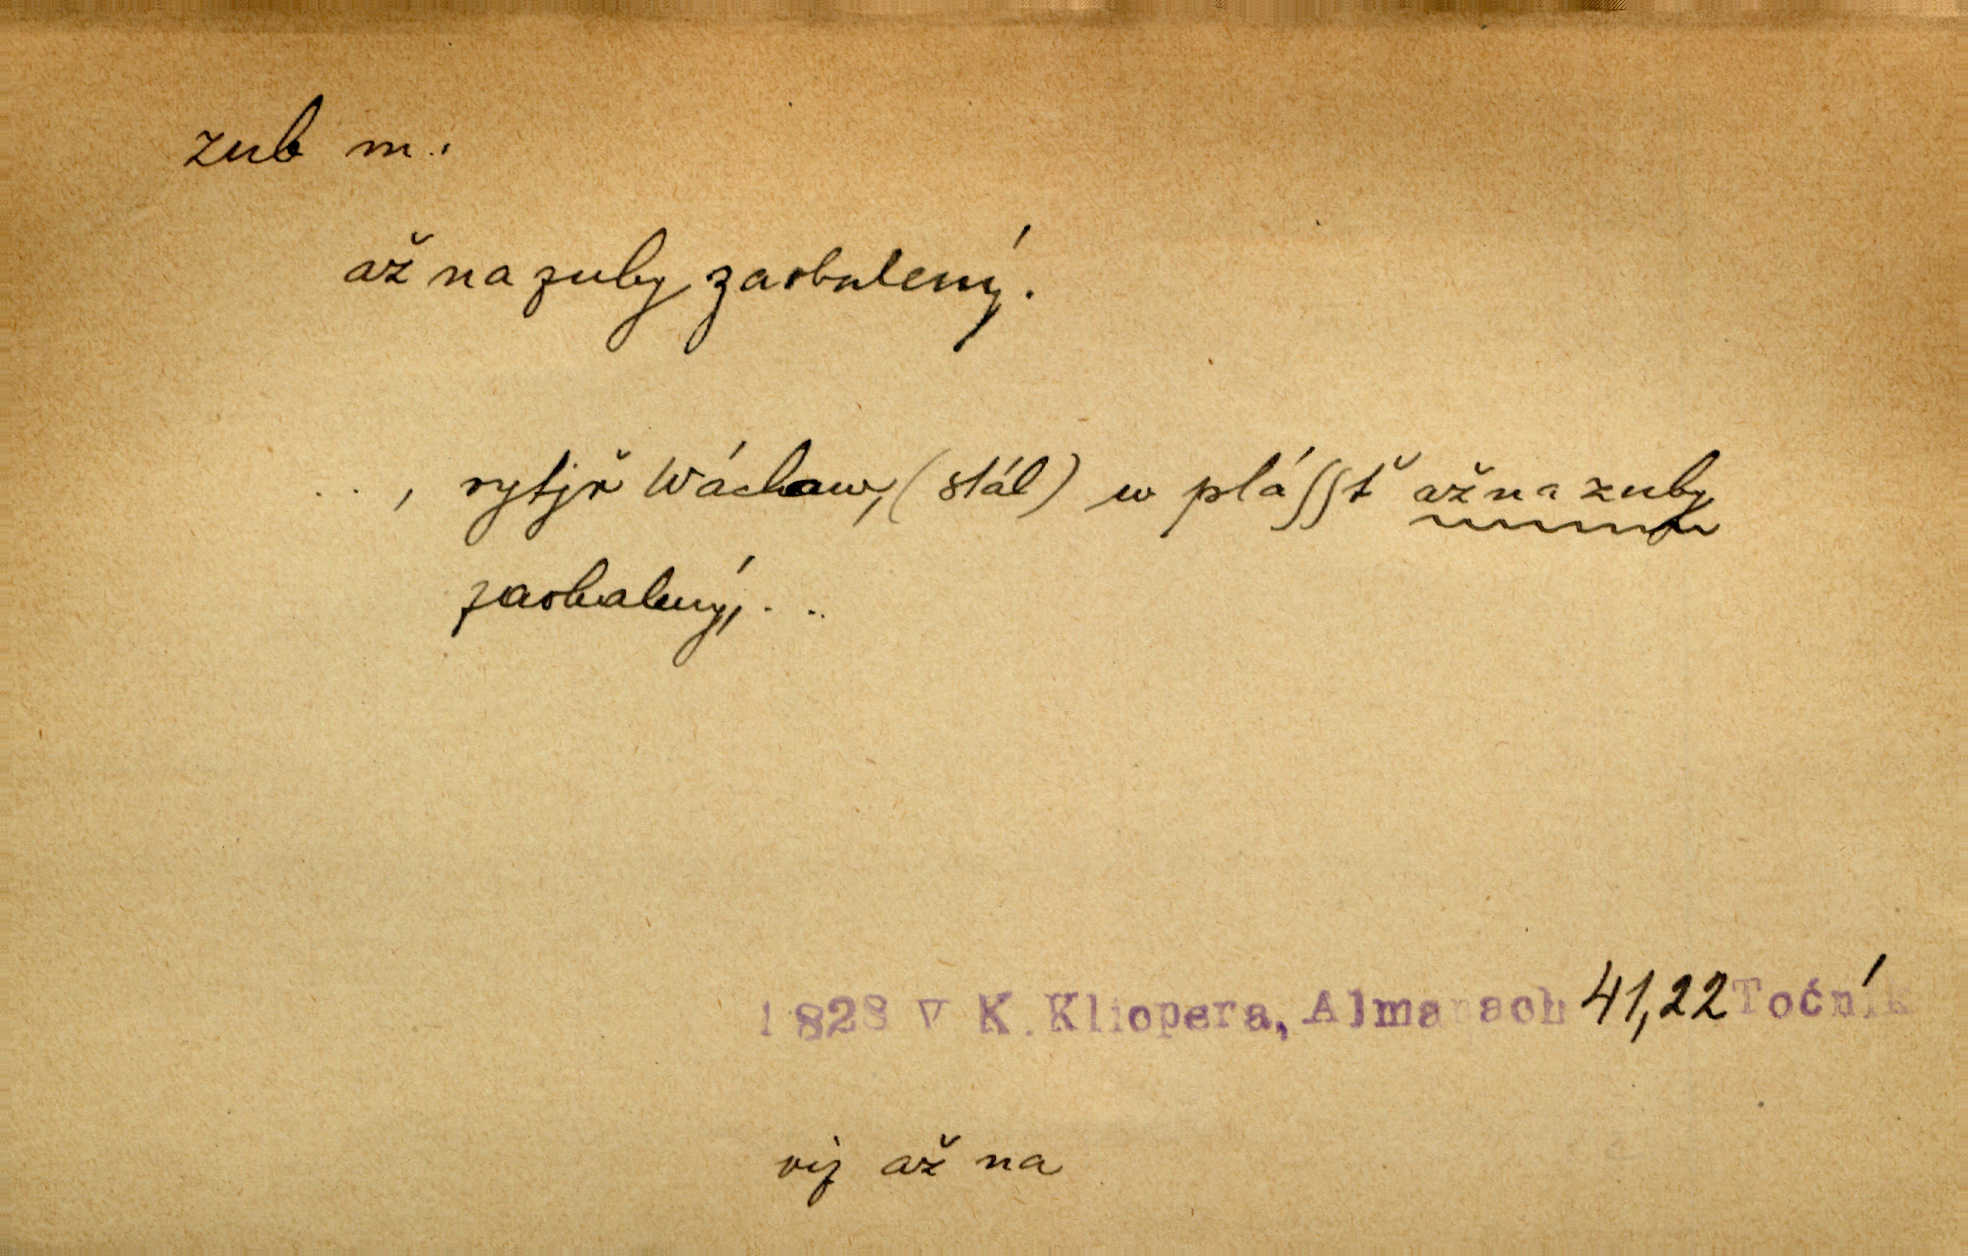 zub m.:
až na zuby zaobalený.
.., rytjř Wácław, (stál) w plášſť až na zuby
zaobalený, ...
1828 V K. Klicpera, Almanach 41,22 Točník
viz až na